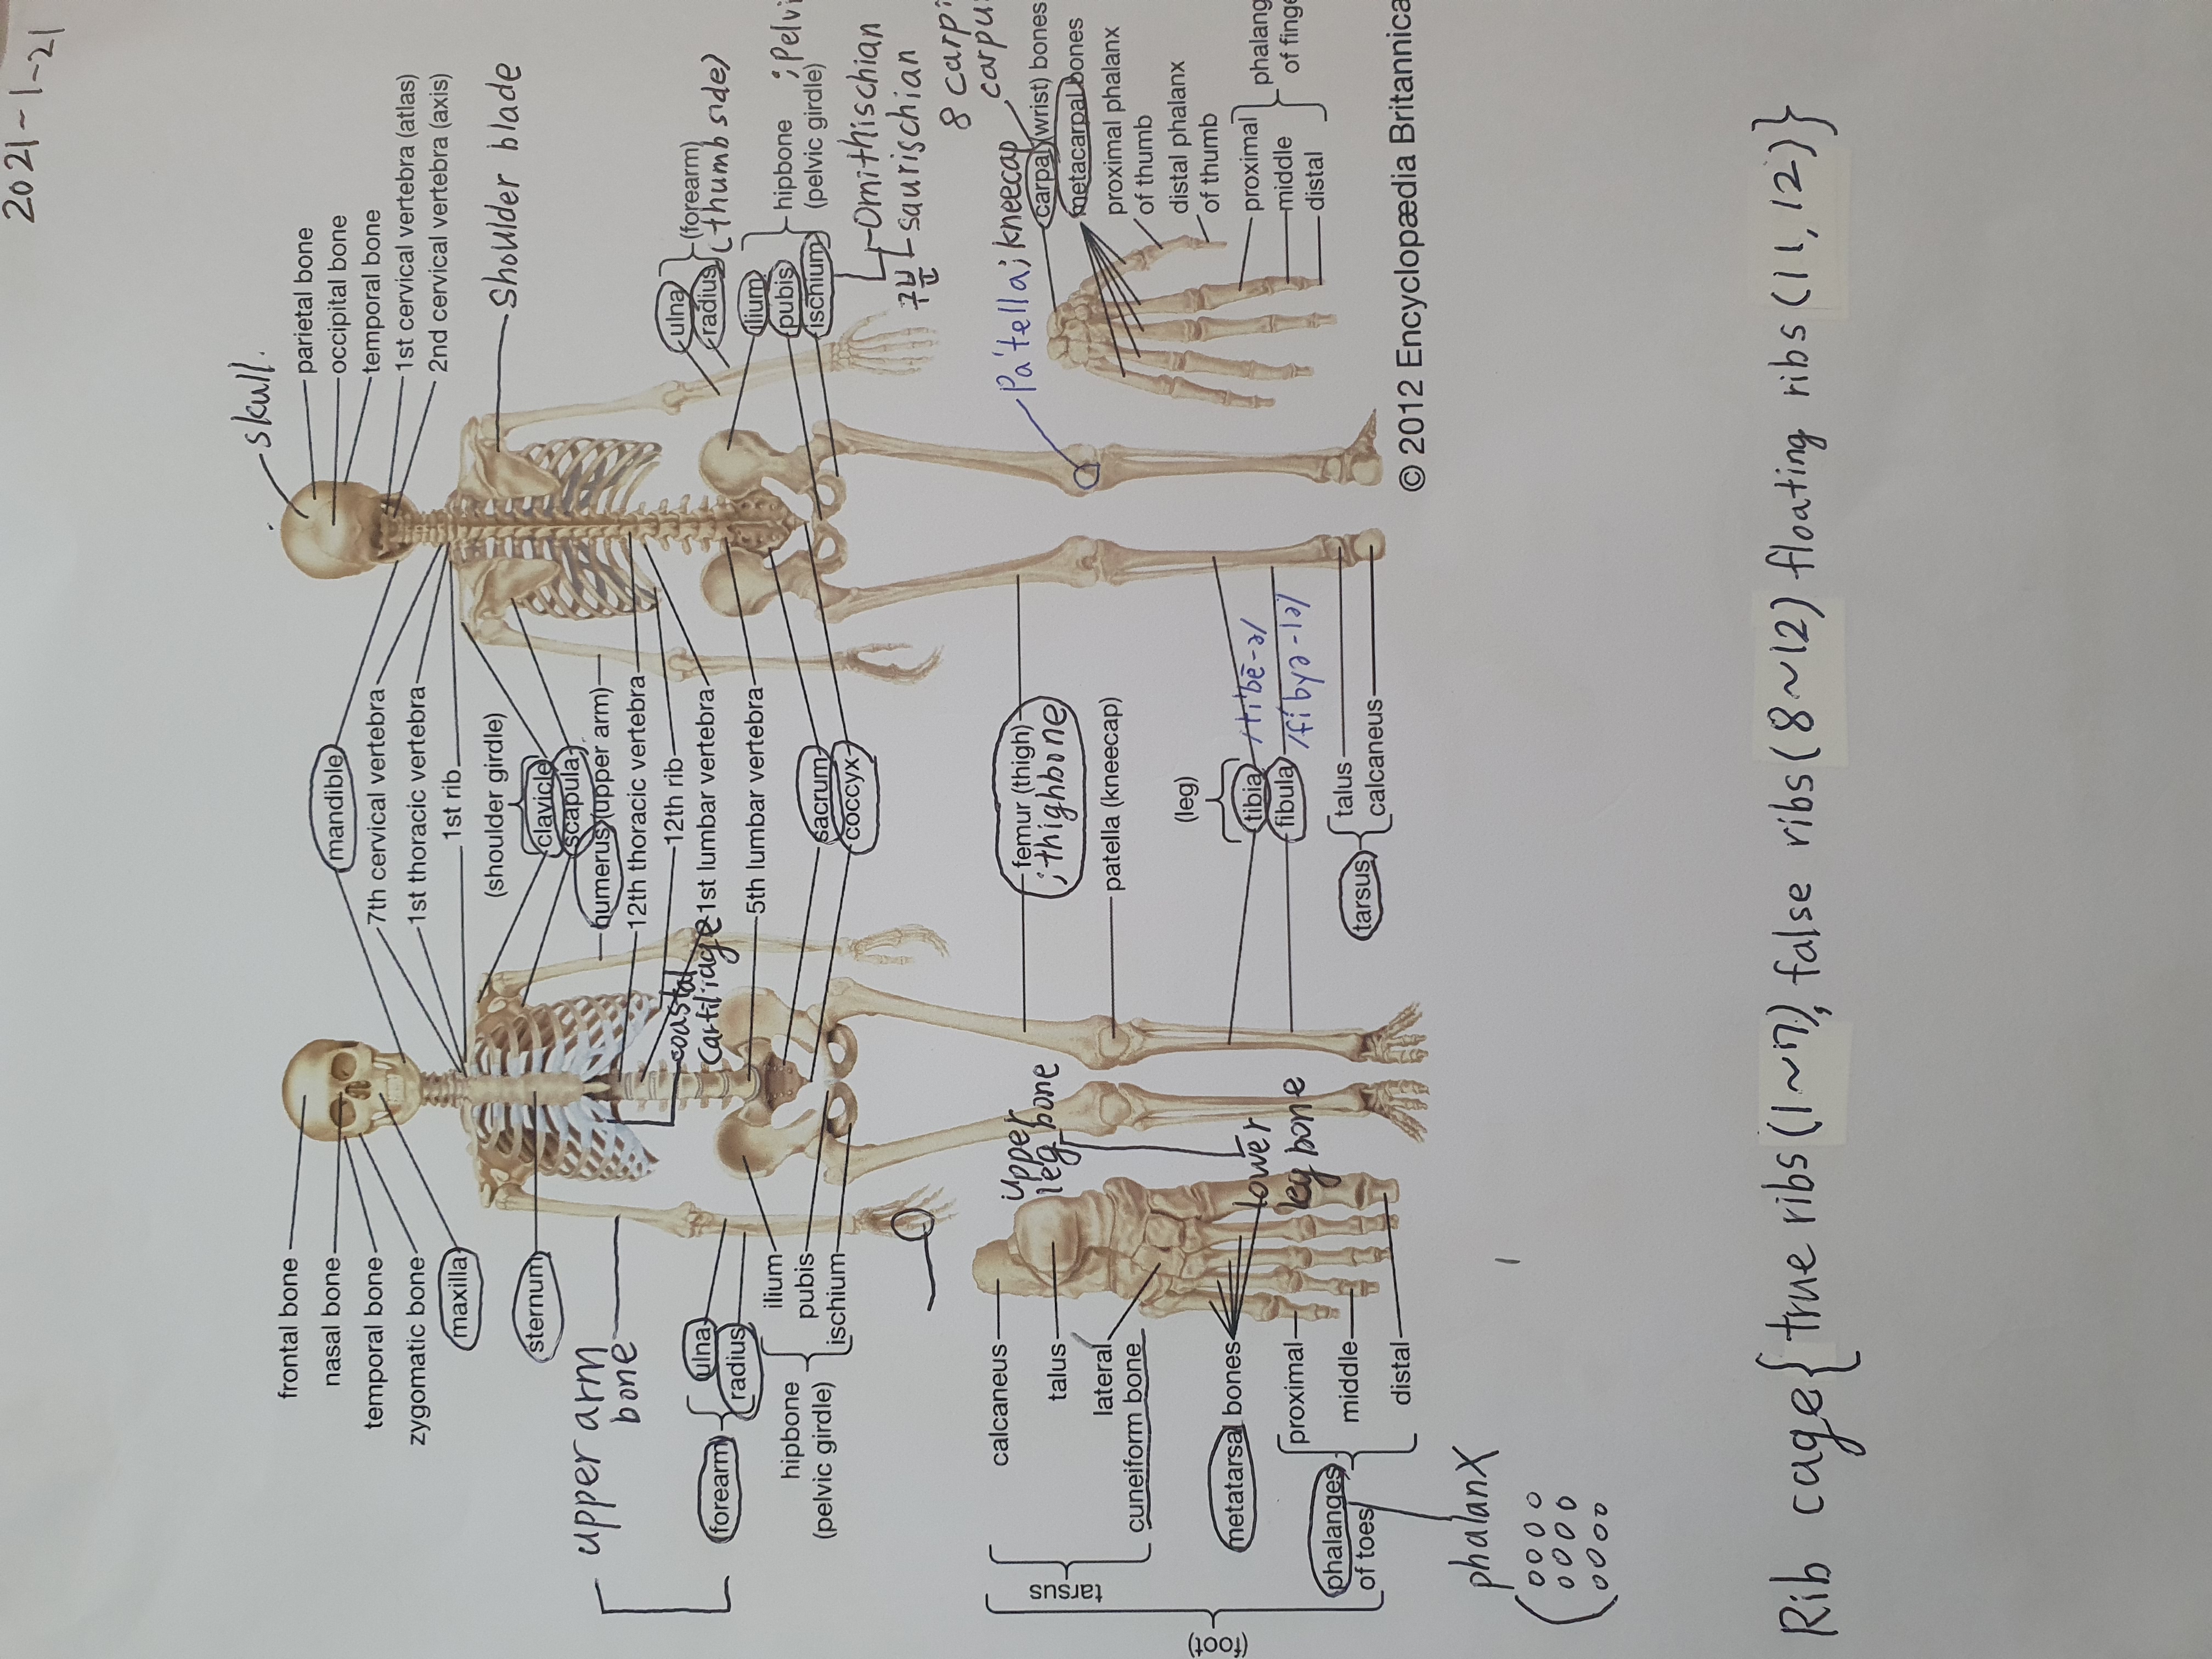 2021-1-21
skull.
parietal bone
occipital bone
temporal bone
1st cervical vertebra (atlas)
2nd cervical vertebra (axis)
shoulder blade
ulna
radius
(forearm)
(thumb side)
ilium
pubis
ischium
hipbone
(pelvic girdle)
; pelvi
구분
Ornithischian
saurischian
8 carpi
carpu
Pa'tella; kneecap
carpal (wrist) bones
metacarpal bones
proximal phalanx
of thumb
distal phalanx
of thumb
proximal
middle
distal
phalang
of finge
© 2012 Encyclopædia Britannica
mandible
7th cervical vertebra
1st thoracic vertebra
1st rib
(shoulder girdle)
clavicle
scapula
humerus (upper arm)
12th thoracic vertebra
12th rib
1st lumbar vertebra
5th lumbar vertebra
coastal
cartilidge
sacrum
coccyx
femur (thigh)
; thighbone
patella (kneecap)
(leg)
tibia
fibula
/tibē-ə/
/fibyə-lə/
tarsus
talus
calcaneus
frontal bone
nasal bone
temporal bone
zygomatic bone
maxilla
sternum
upper arm
bone
(forearm)
ulna
radius
hipbone
(pelvic girdle)
ilium
pubis
ischium
upper
leg bone
lower
leg bone
calcaneus
talus
lateral
cuneiform bone
tarsus
(foot)
metatarsal bones
phalanges
of toes
proximal
middle
distal
phalanx
Rib cage {true ribs (1~7), false ribs (8~12) floating ribs (11, 12)}